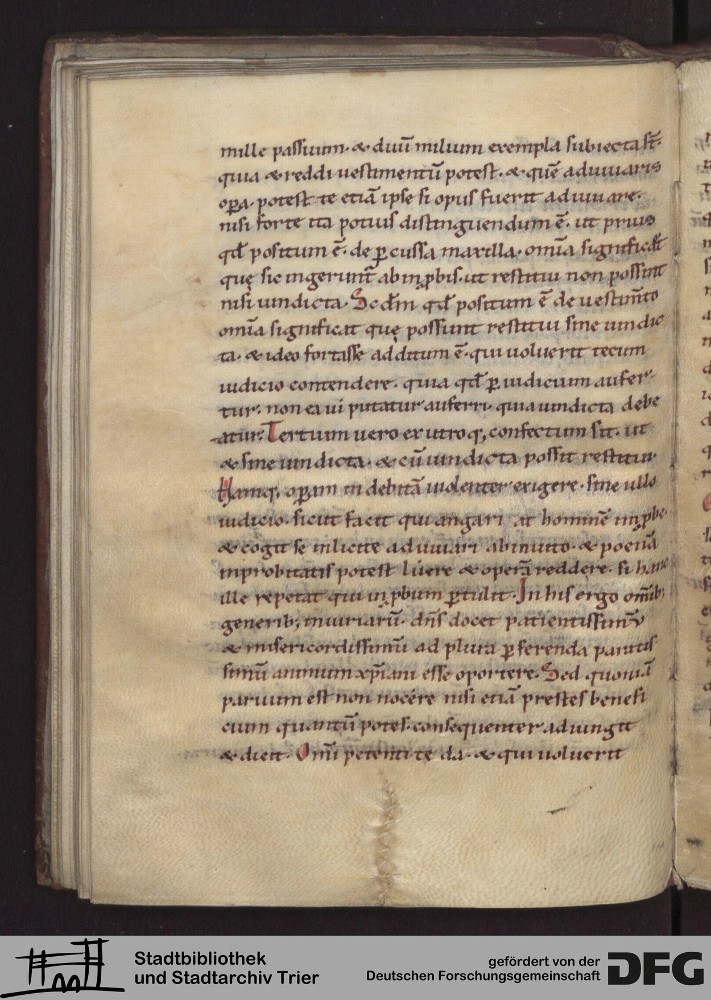 mille passuum · & duū milium exempla subiecta st̄·
quia & reddi uestimentū potest · & quē adiuuaris
opa potest te etiā ipse si opus fuerit adiuuare·
nisi forte ita potius distinguendum ē· ut prius
qd̄ positum ē· de p̄cussa maxilla · omīa significet
quę sic ingerunt̄ ab inp̄bis · ut restitui non possint
nisi uindicta · Scd̄m qd̄ positum ē de uestim̄to
omīa significat quę possunt restitui sine uindic
ta · & ideo fortasse additum ē· qui uoluerit tecum
iudicio contendere · quia qd̄ p̄ iudicium aufer
tur· non ea ui putatur auferri· quia uindicta debe
atur· Tertium uero ex utroq; confectum sit · ut
& sine uindicta · & cū uindicta possit restitui·
Namq; opam indebitā uiolenter exigere · sine ullo
iudicio · sicut facit qui angari at hominē inp̄be·
& cogit se inlicite adiuuari ab inuito · & poenā
inprobitatis potest luere & operā reddere · si hanc
ille repetat qui inp̄bum p̄tulit· In his ergo omīb;
generib; iniuriarū· dn̄s docet patientissimū
& misericordissimū ad plura p̄ferenda paratis
simū animum xp̄iani esse oportere · Sed quoniā
paruum est non nocére nisi etiā prestes benefi
cium quantū potes · consequenter adiungit
& dicit· Omī petenti te da · & qui uoluerit
Stadtbibliothek
und Stadtarchiv Trier
gefördert von der
Deutschen Forschungsgemeinschaft
DFG